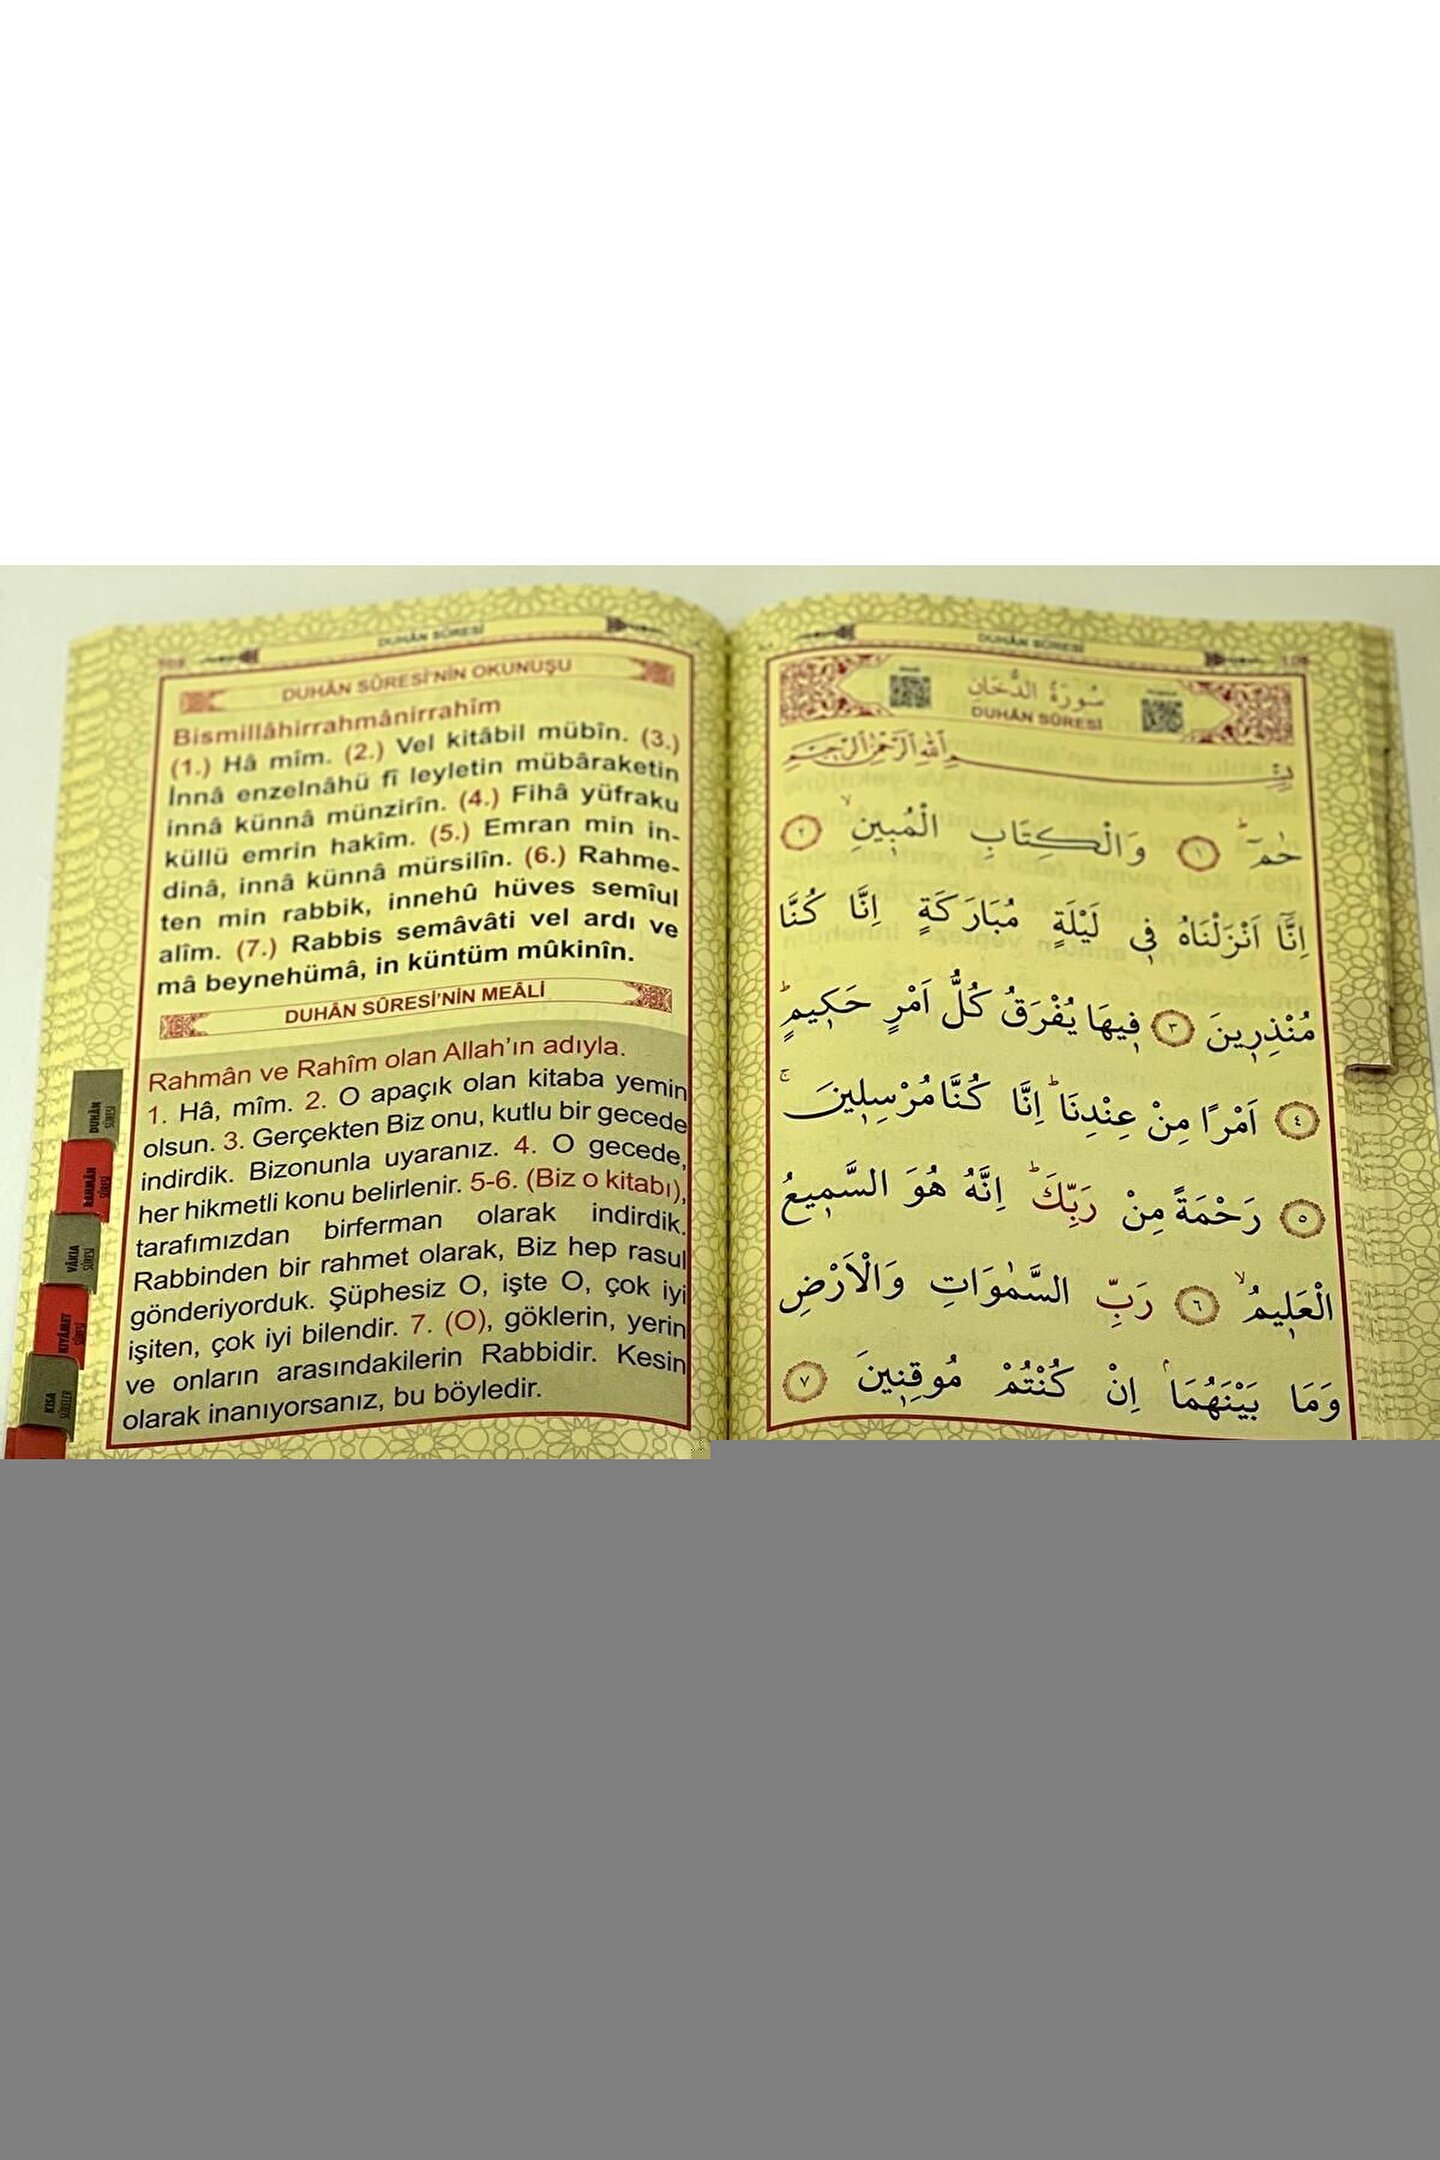 DUHÂN SÛRESİ
DUHÂN SÛRESİ'NİN OKUNUŞU
Bismillâhirrahmânirrahîm
(1.) Hâ mîm. (2.) Vel kitâbil mübîn. (3.)
İnnâ enzelnâhü fî leyletin mübâraketin
innâ künnâ münzirîn. (4.) Fihâ yüfraku
küllü emrin hakîm. (5.) Emran min in-
dinâ, innâ künnâ mürsilîn. (6.) Rahme-
ten min rabbik, innehû hüves semîul
alîm. (7.) Rabbis semâvâti vel ardı ve
mâ beynehümâ, in küntüm mûkinîn.
DUHÂN SÛRESİ'NİN MEÂLİ
Rahmân ve Rahîm olan Allah'ın adıyla.
1. Hâ, mîm. 2. O apaçık olan kitaba yemin
olsun. 3. Gerçekten Biz onu, kutlu bir gecede
indirdik. Bizonunla uyaranız. 4. O gecede,
her hikmetli konu belirlenir. 5-6. (Biz o kitabı),
tarafımızdan birferman olarak indirdik.
Rabbinden bir rahmet olarak, Biz hep rasul
gönderiyorduk. Şüphesiz O, işte O, çok iyi
işiten, çok iyi bilendir. 7. (O), göklerin, yerin
ve onların arasındakilerin Rabbidir. Kesin
olarak inanıyorsanız, bu böyledir.
DUHÂN
SÛRESİ
RAHMÂN
SÛRESİ
VÂKIA
SÛRESİ
KIYÂMET
SÛRESİ
KISA
SÛRELER
DUHÂN SÛRESİ
سُورَةُ الدُّخَانِ
DUHÂN SÛRESİ
بِسْمِ اللّٰهِ الرَّحْمٰنِ الرَّحِيمِ
حٰمٓ ۜ ﴿١﴾ وَالْكِتَابِ الْمُبِينِ ۙ ﴿٢﴾
اِنَّٓا اَنْزَلْنَاهُ فِي لَيْلَةٍ مُبَارَكَةٍ اِنَّا كُنَّا
مُنْذِرِينَ ﴿٣﴾ فِيهَا يُفْرَقُ كُلُّ اَمْرٍ حَكِيمٍ ۜ
﴿٤﴾ اَمْرًا مِنْ عِنْدِنَا ۜ اِنَّا كُنَّا مُرْسِلِينَ ۚ
﴿٥﴾ رَحْمَةً مِنْ رَبِّكَ ۜ اِنَّهُ هُوَ السَّمِيعُ
الْعَلِيمُ ۙ ﴿٦﴾ رَبِّ السَّمٰوَاتِ وَالْاَرْضِ
وَمَا بَيْنَهُمَا ۢ اِنْ كُنْتُمْ مُوقِنِينَ ﴿٧﴾